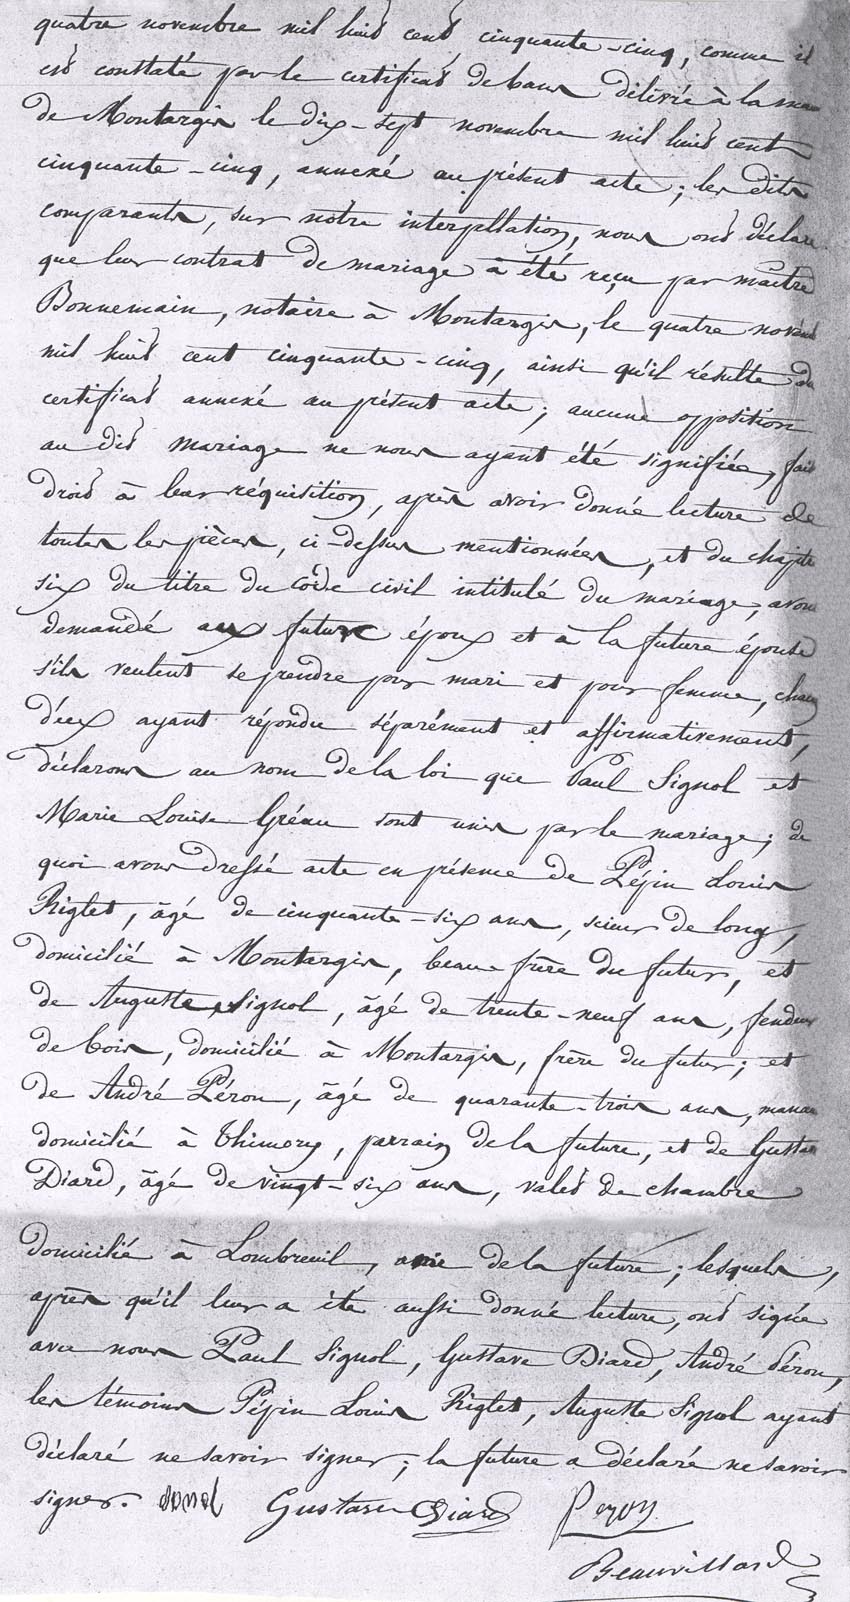 quatre novembre mil huit cent cinquante-cinq, comme il
est constaté par le certificat de bans délivré à la mai
de Montargis le dix-sept novembre mil huit cent
cinquante-cinq, annexé au présent acte ; les dits
comparants, sur notre interpellation, nous ont déclaré
que leur contrat de mariage à été reçu par maître
Bonnemain, notaire à Montargis, le quatre novem
mil huit cent cinquante-cinq, ainsi qu'il résulte du
certificat annexé au présent acte ; aucune opposition
au dit mariage ne nous ayant été signifiée, fait
droit à leur réquisition, après avoir donné lecture de
toutes les pièces, ci-dessus mentionnées, et du chapitre
six du titre du code civil intitulé du mariage, avons
demandé aux futur époux et à la future épouse
s'ils veulent se prendre pour mari et pour femme, chacun
d'eux ayant répondu séparément et affirmativement,
déclarons au nom de la loi que Paul Signol et
Marie Louise Gréau sont unis par le mariage ; de
quoi avons dressé acte en présence de Pépin Louis
Riglet, âgé de cinquante-six ans, scieur de long,
domicilié à Montargis, beau-frère du futur, et
de Auguste Signol, âgé de trente-neuf ans, fendeur
de bois, domicilié à Montargis, frère du futur ; et
de André Péron, âgé de quarante-trois ans, manœ
domicilié à Thimory, parrain de la future, et de Gustave
Diard, âgé de vingt-six ans, valet de chambre
domicilié à Lombreuil, amie de la future ; lesquels,
après qu'il leur a été aussi donné lecture, ont signé
avec nous Paul Signol, Gustave Diard, André Péron,
les témoins Pépin Louis Riglet, Auguste Signol ayant
déclaré ne savoir signer ; la future a déclaré ne savoir
signer. Gustave Diard Peron
Beauvillard